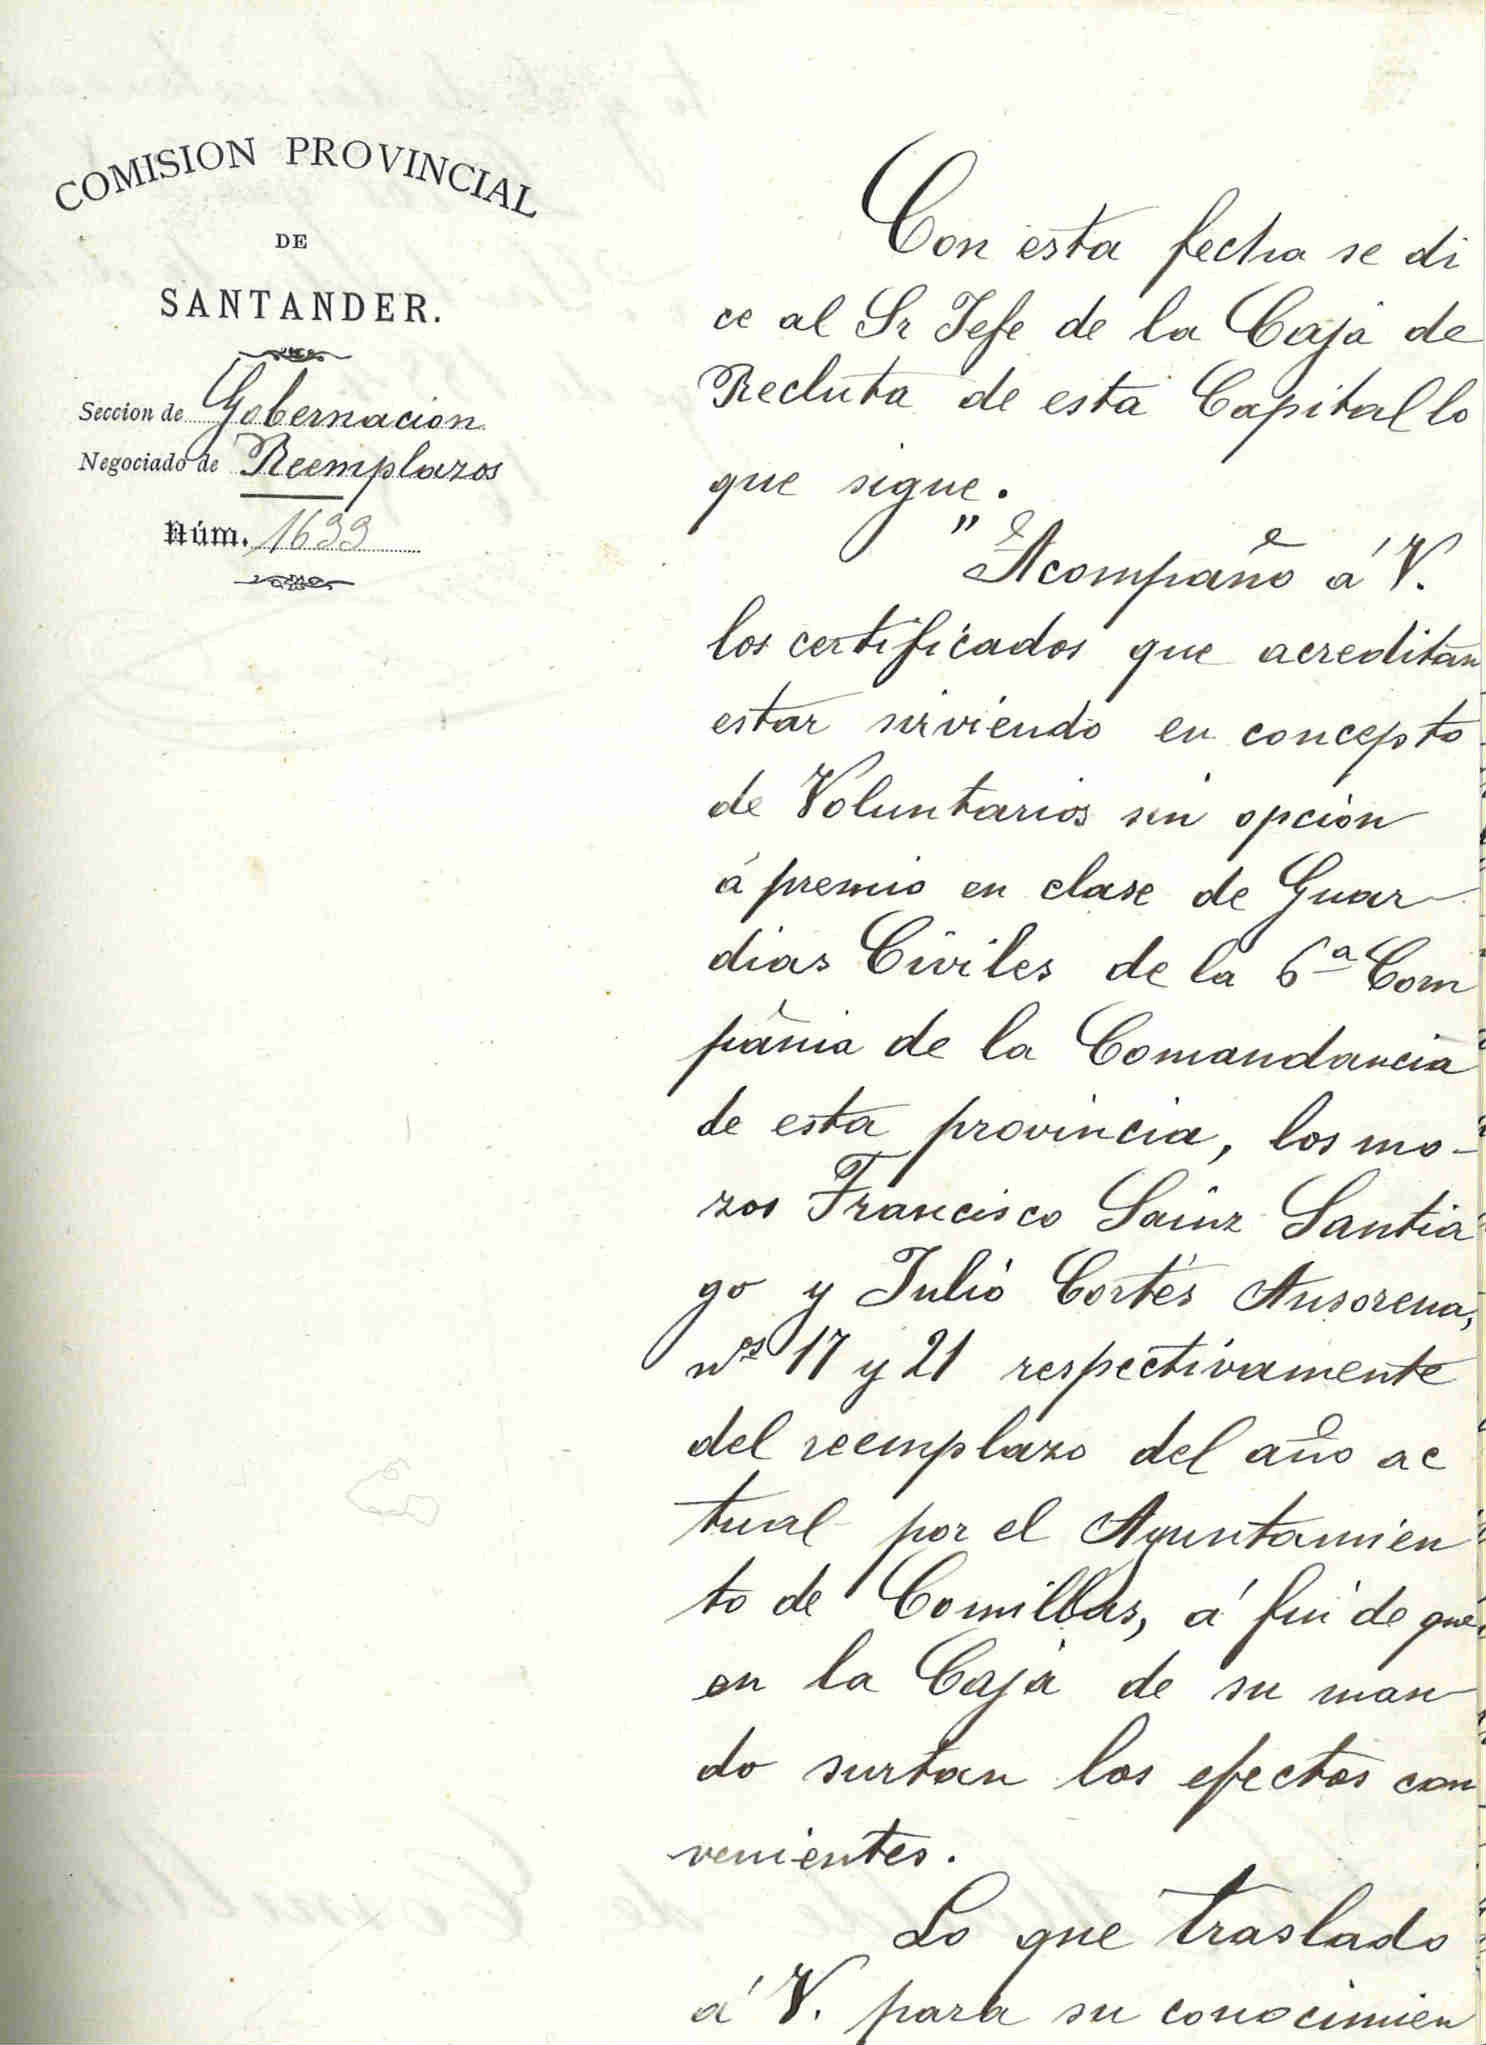 COMISION PROVINCIAL
DE
SANTANDER.
Seccion de Gobernacion
Negociado de Reemplazos
Núm. 1699
Con esta fecha se di
ce al Sr Jefe de la Caja de
Recluta de esta Capital lo
que sigue.
"Acompaño á V.
los certificados que acreditan
estar sirviendo en concepto
de Voluntarios sin opcion
á premio en clase de Guar
dias Civiles de la 6ª Com
pañia de la Comandancia
de esta provincia, los mo-
zos Francisco Sainz Santia
go y Julio Cortés Ansorena,
nos 17 y 21 respectivamente
del reemplazo del año ac
tual por el Ayuntamien
to de Comillas, á fin de que
en la Caja de su man
do surtan los efectos con
venientes.
Lo que traslado
á V. para su conocimien